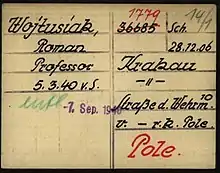 1779 14/4
Wojtusiak, 36685 Sch.
Roman 28.12.06
Professor Krakau
5.3.40 v.S. -"-
entl. -7. Sep. 1940 Straße d. Wehrm. 10
v. - r.k. Pole
Pole.